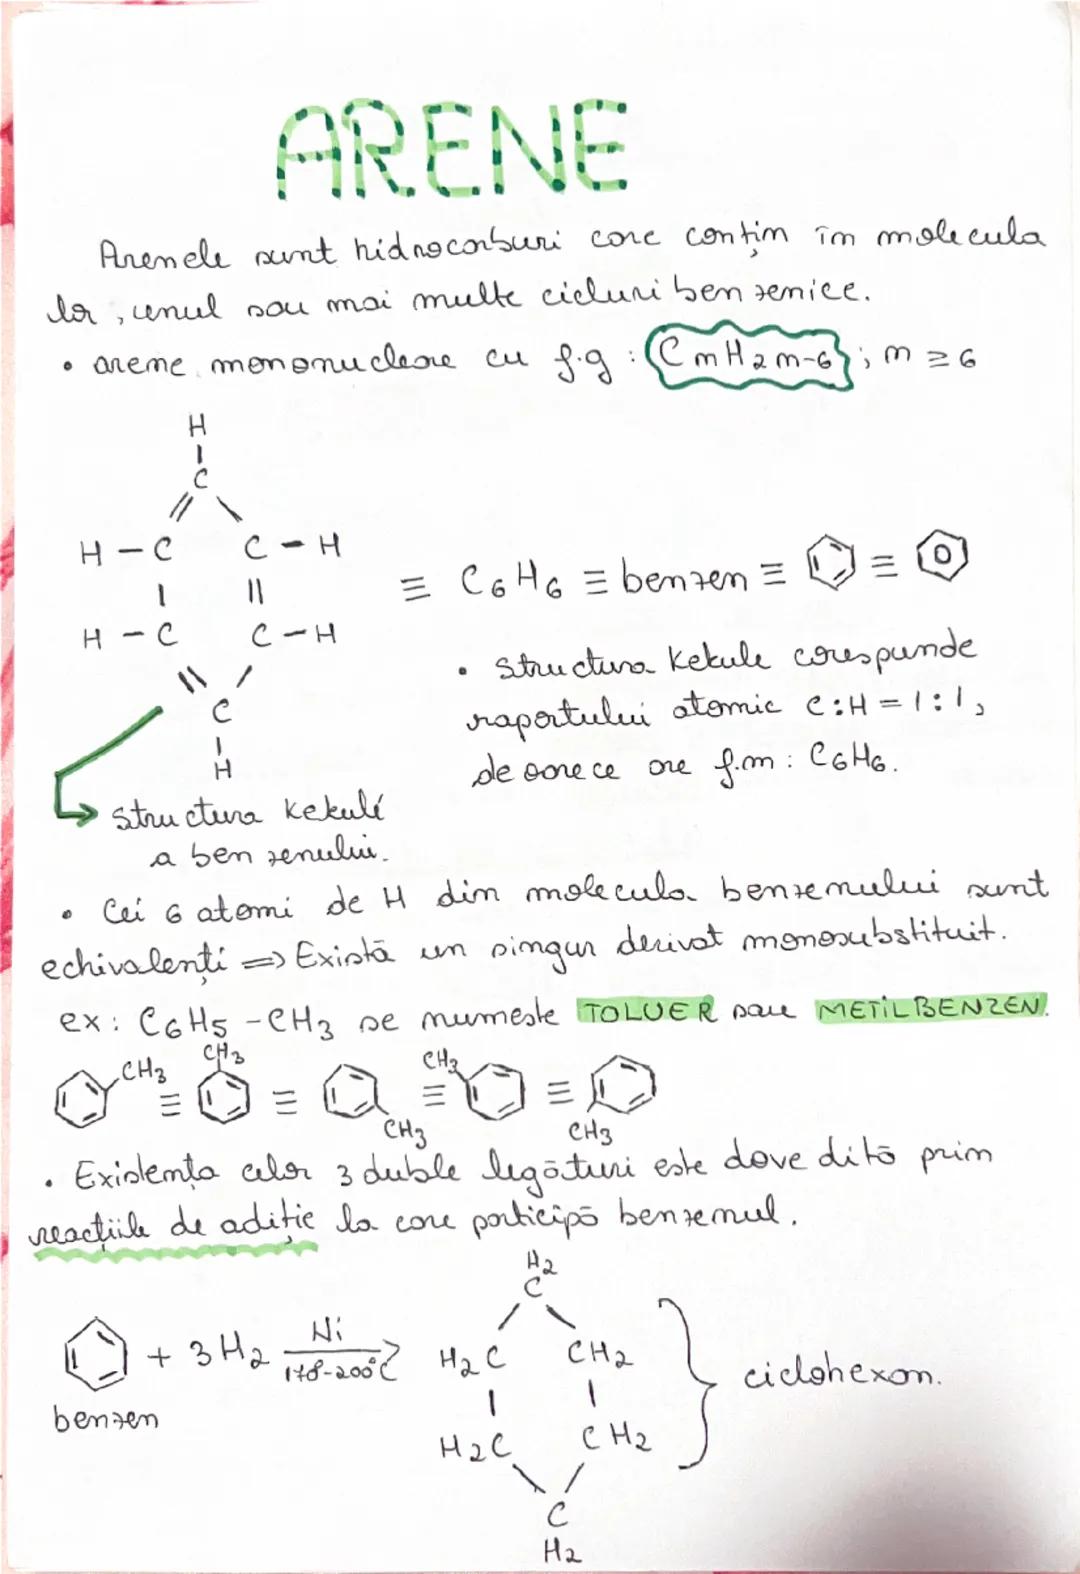 ARENE
Arenele sunt hidrocarburi care conțin în molecula
lor, unul sau mai multe cicluri benzenice.
• arene mononucleare cu f.g : CnH2n-6 ; n ≥ 6
H
C
H - C C - H
H - C C - H
C
H
≡ C6H6 ≡ benzen ≡ ≡
• structura Kekule corespunde
raportului atomic C:H = 1:1,
deoarece are f.m : C6H6.
structura Kekulé
a benzenului.
• Cei 6 atomi de H din molecula benzenului sunt
echivalenți => Există un singur derivat monosubstituit.
ex: C6H5 - CH3 se numește TOLUER sau METILBENZEN.
CH3 ≡ CH3 ≡ CH3 ≡ CH3 ≡ CH3
• Existența celor 3 duble legături este dovedită prin
reacțiile de adiție la care participă benzenul.
H2
C
+ 3H2 Ni 178-200°C H2C CH2 ciclohexan.
benzen
H2C CH2
C
H2